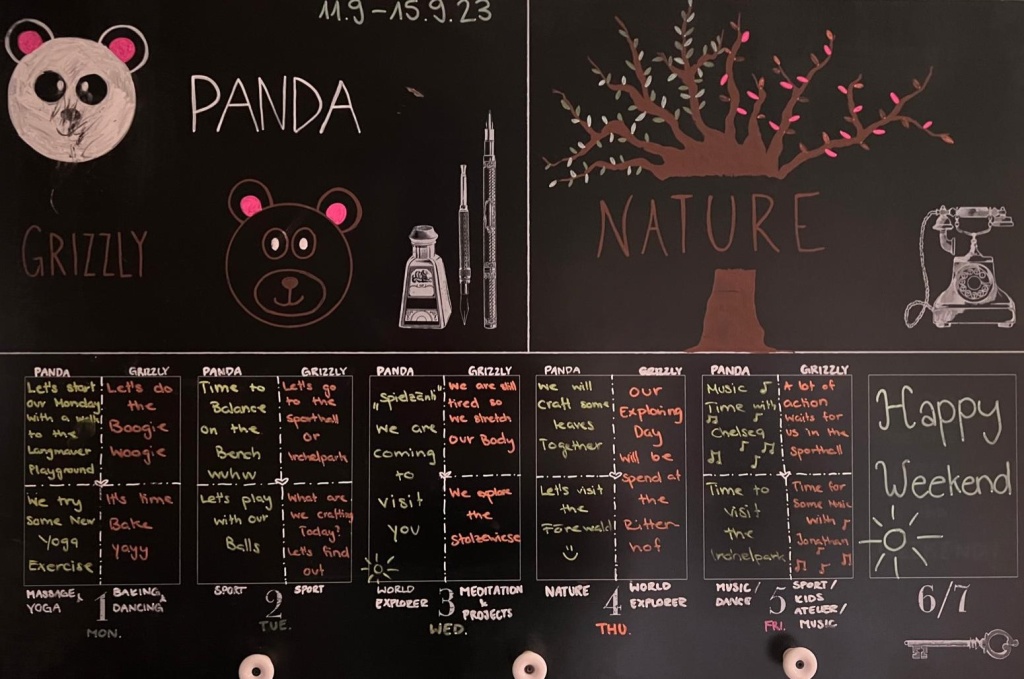 11.9 – 15.9.23
PANDA
GRIZZLY
NATURE
PANDA
Let's start
our Monday
with a walk
to the
Langmauer
Playground
We try
Some New
Yoga
Exercise
MASSAGE &
YOGA
GRIZZLY
Let's do
the
Boogie
woogie
It's time
Bake
yayy
BAKING &
DANCING
1
MON.
PANDA
Time to
Balance
on the
Bench
wuhw
Let's play
with our
Balls
SPORT
GRIZZLY
Let's go
to the
Sporthall
or
Irchelpark
What are
we crafting
Today?
Let's find
out
SPORT
2
TUE.
PANDA
"Spielzänli"
we are
coming
to
visit
you
WORLD
EXPLORER
GRIZZLY
We are still
tired so
we stretch
our Body
We explore
the
Stolzewiese
MEDITATION
& PROJECTS
3
WED.
PANDA
We will
craft some
leaves
Together
Let's visit
the
NATURE
GRIZZLY
our
Exploring
Day
will be
spend at
the
Ritter-
hof
WORLD
EXPLORER
4
THU.
PANDA
Music
Time with
Chelsea
Time to
visit
the
Irchelpark
MUSIC /
DANCE
GRIZZLY
A lot of
action
waits for
us in the
Sporthall
Time for
Some Music
with
Jonathan
SPORT /
KIDS
ATELIER /
MUSIC
5
FRI.
Happy
Weekend
6/7